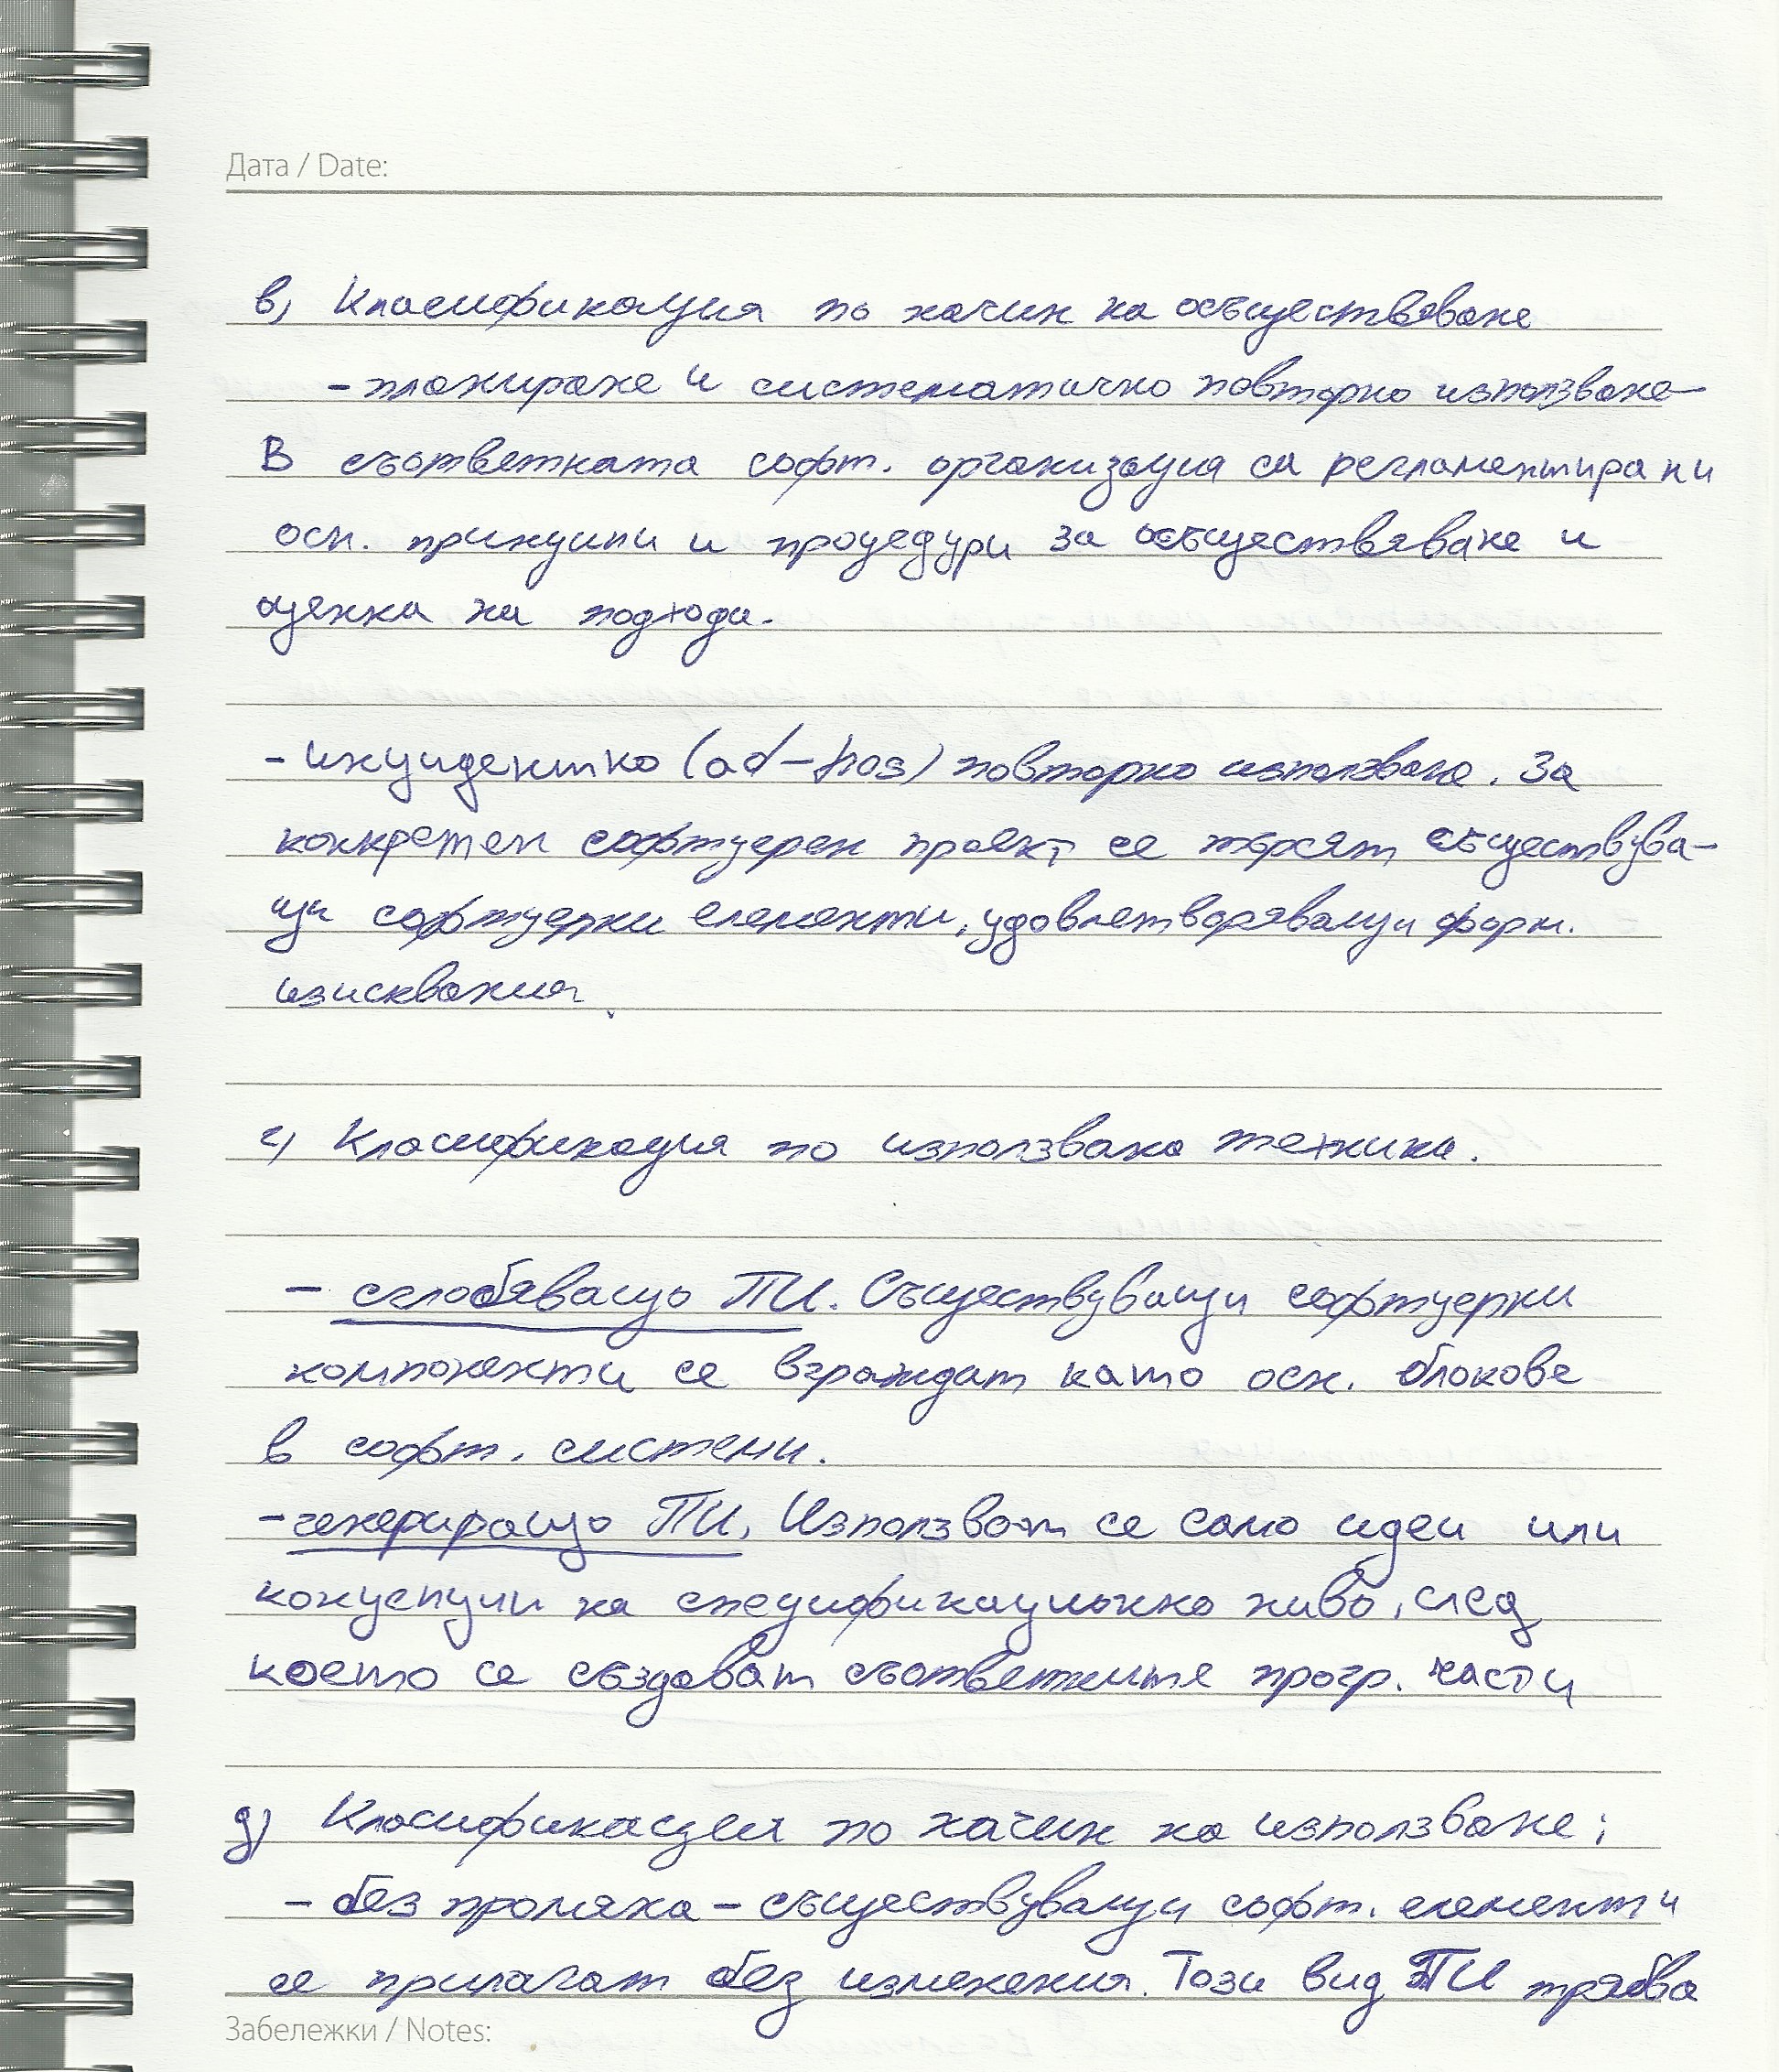 Дата / Date:
в) Класификация по начин на осъществяване
- планиране и систематично повторно използване
В съответната софт. организация са регламентирани
осн. принципи и процедури за осъществяване и
оценка на подхода.
- инцидентно (ad-hos) повторно използване. За
конкретен софтуерен проект се търсят съществува-
щи софтуерни елементи, удовлетворяващи форм.
изисквания.
г) Класификация по използвана техника.
- сглобяващо ПИ. Съществуващи софтуерни
компоненти се вграждат като осн. блокове
в софт. системи.
- генериращо ПИ. Използват се само идеи или
концепции на спецификационно ниво, след
което се създават съответните прогр. части
д) Класификация по начин на използване:
- без промяна - съществуващи софт. елементи
се прилагат без изменения. Този вид ПИ трябва
Забележки / Notes: